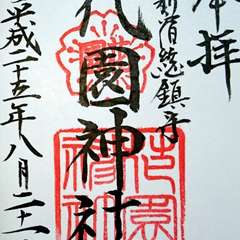 奉拝
新宿總鎮守
花園神社
平成二十五年八月二十一